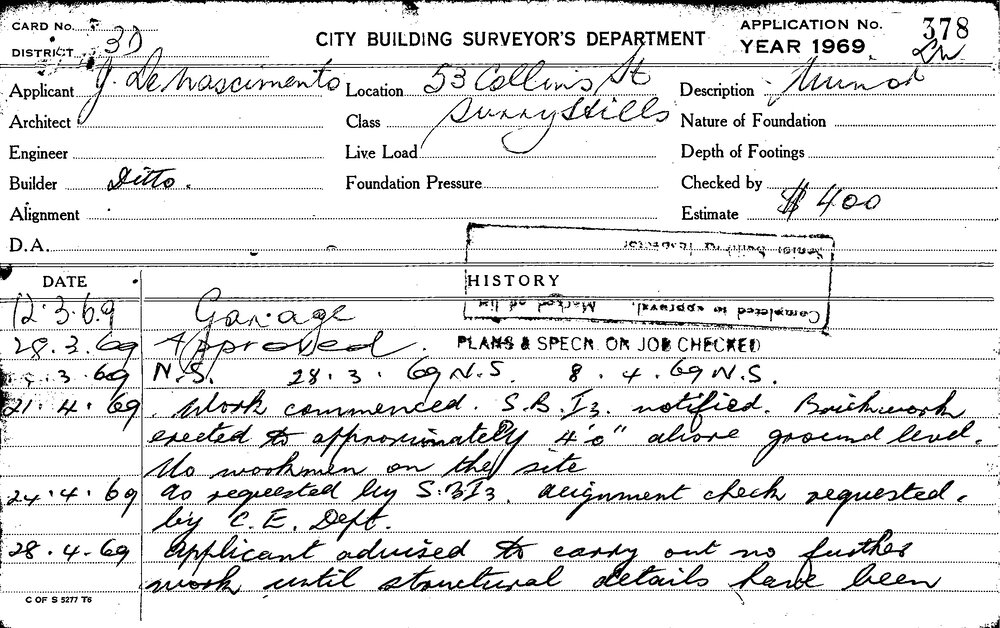 CARD NO.
CITY BUILDING SURVEYOR'S DEPARTMENT
APPLICATION No. 378
DISTRICT 3D
YEAR 1969
Applicant J. De Nascimento Location 53 Collins St Description Minor
Architect Class Surry Hills Nature of Foundation
Engineer Live Load Depth of Footings
Builder Ditto. Foundation Pressure Checked by
Alignment Estimate $400
D.A.
Senior Building Inspector
DATE HISTORY
Completed as approval. Marked on list
12.3.69 Garage
28.3.69 Approved. PLANS & SPECN. ON JOB CHECKED
3.69 N.S. 28.3.69 N.S. 8.4.69 N.S.
21.4.69 Work commenced. S.B.I3. notified. Brickwork
erected to approximately 4'0" above ground level.
No workmen on the site
24.4.69 as requested by S.B.I3. alignment check requested.
by C.E. Dept.
28.4.69 Applicant advised to carry out no further
work until structural details have been
C OF S 5277 T6